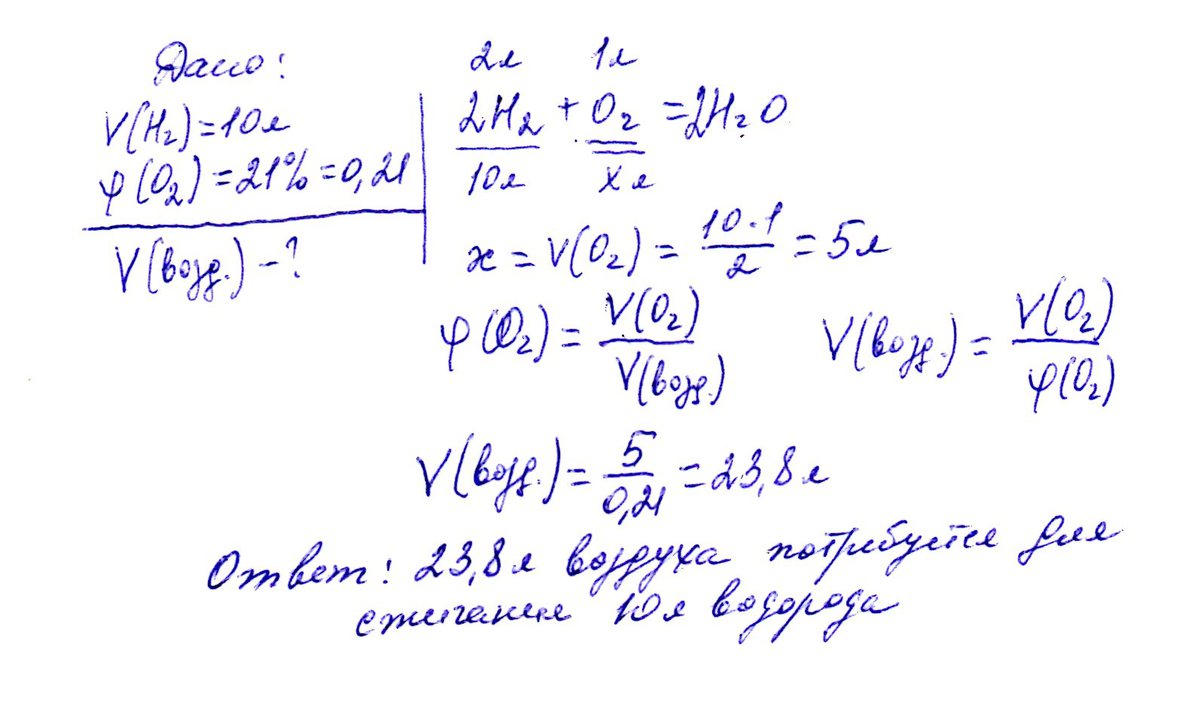 Дано:
V(H₂)=10л
φ(O₂)=21%=0,21
V(возд.)-?
2л 1л
2H₂ + O₂ = 2H₂O
10л xл
x = V(O₂) = 10·1/2 = 5л
φ(O₂) = V(O₂)/V(возд.) V(возд.) = V(O₂)/φ(O₂)
V(возд.) = 5/0,21 = 23,8л
Ответ: 23,8л воздуха потребуется для
сжигания 10л водорода